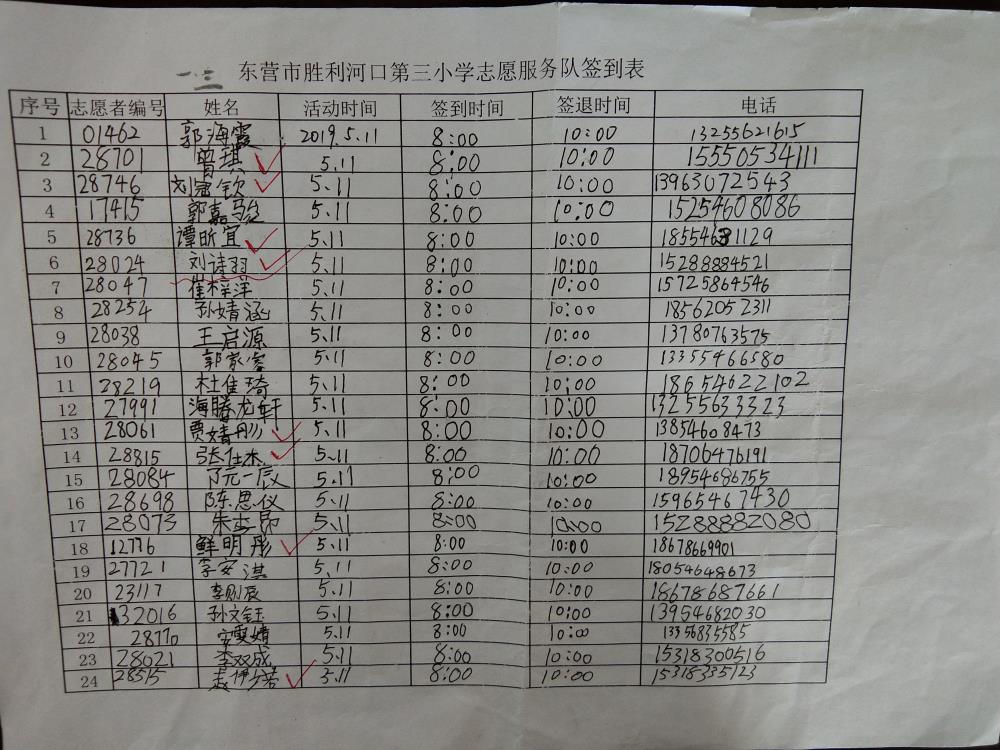 一.三 东营市胜利河口第三小学志愿服务队签到表
序号 志愿者编号 姓名 活动时间 签到时间 签退时间 电话
1 01462 郭海霞 2019.5.11 8:00 10:00 13255621615
2 28701 曾琪 5.11 8:00 10:00 15550534111
3 28746 刘冠钦 5.11 8:00 10:00 13963072543
4 17415 郭嘉骏 5.11 8:00 10:00 15254608086
5 28736 谭昕宜 5.11 8:00 10:00 18554631129
6 28024 刘诗羽 5.11 8:00 10:00 15288884521
7 28047 崔梓洋 5.11 8:00 10:00 15725864546
8 28254 孙婧涵 5.11 8:00 10:00 18562052311
9 28038 王启源 5.11 8:00 10:00 13780763575
10 28045 郭家睿 5.11 8:00 10:00 13355466580
11 28219 杜佳琦 5.11 8:00 10:00 18654622102
12 27991 海腾龙轩 5.11 8:00 10:00 13255633323
13 28061 贾婧彤 5.11 8:00 10:00 13854608473
14 28815 张仕杰 5.11 8:00 10:00 18706476191
15 28084 亓一辰 5.11 8:00 10:00 18954686755
16 28698 陈思仪 5.11 8:00 10:00 15965467430
17 28073 5.11 8:00 10:00 15288882080
18 12776 鲜明彤 5.11 8:00 10:00 18678669901
19 27721 李安淇 5.11 8:00 10:00 18054648673
20 23117 李则辰 5.11 8:00 10:00 18678687661
21 32016 孙文钰 5.11 8:00 10:00 13954682030
22 28770 安雯婧 5.11 8:00 10:00 13356835585
23 28021 李双成 5.11 8:00 10:00 15318300516
24 28515 5.11 8:00 10:00 15318335123